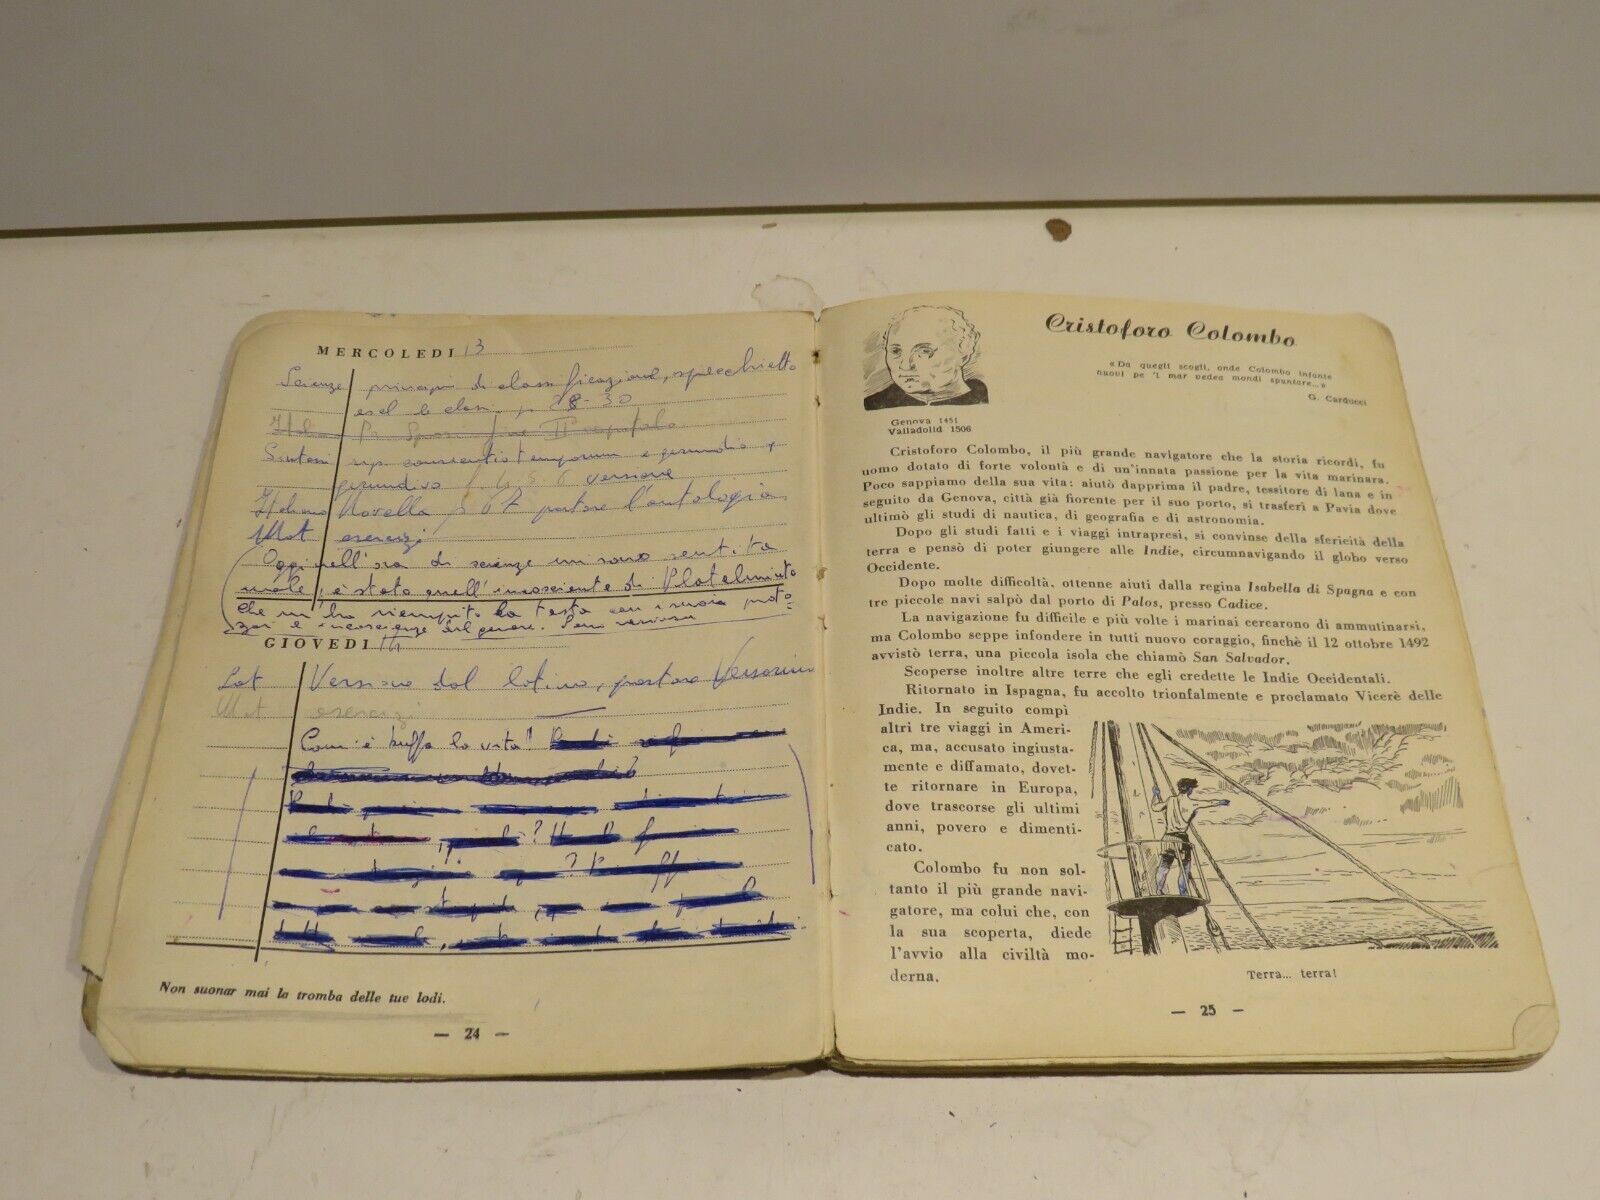 MERCOLEDI 13
Scienze principi di classificazione, specchietto
es. 28-30
Sintassi consecutio temporum e gerundio e
gerundivo versione
Italiano Novella p 67 portare l'antologia
Mat esercizi
Oggi nell'ora di scienze mi sono sentita
male, è stato quell'incosciente di Platelminto
che m'ha riempito la testa con i suoi proto=
zoi e incoscienze del genere. Sono
GIOVEDI 14
Lat Versione dal latino, portare Versioni
Mat esercizi
Com'è buffa la vita!!
Non suonar mai la tromba delle tue lodi.
— 24 —
Cristoforo Colombo
«Da quegli scogli, onde Colombo infante
nuovi pe 'l mar vedea mondi spuntare...»
G. Carducci
Genova 1451
Valladolid 1506
Cristoforo Colombo, il più grande navigatore che la storia ricordi, fu
uomo dotato di forte volontà e di un'innata passione per la vita marinara.
Poco sappiamo della sua vita: aiutò dapprima il padre, tessitore di lana e in
seguito da Genova, città già fiorente per il suo porto, si trasferì a Pavia dove
ultimò gli studi di nautica, di geografia e di astronomia.
Dopo gli studi fatti e i viaggi intrapresi, si convinse della sfericità della
terra e pensò di poter giungere alle Indie, circumnavigando il globo verso
Occidente.
Dopo molte difficoltà, ottenne aiuti dalla regina Isabella di Spagna e con
tre piccole navi salpò dal porto di Palos, presso Cadice.
La navigazione fu difficile e più volte i marinai cercarono di ammutinarsi,
ma Colombo seppe infondere in tutti nuovo coraggio, finchè il 12 ottobre 1492
avvistò terra, una piccola isola che chiamò San Salvador.
Scoperse inoltre altre terre che egli credette le Indie Occidentali.
Ritornato in Ispagna, fu accolto trionfalmente e proclamato Vicerè delle
Indie. In seguito compì
altri tre viaggi in Ameri-
ca, ma, accusato ingiusta-
mente e diffamato, dovet-
te ritornare in Europa,
dove trascorse gli ultimi
anni, povero e dimenti-
cato.
Colombo fu non sol-
tanto il più grande navi-
gatore, ma colui che, con
la sua scoperta, diede
l'avvio alla civiltà mo-
derna.
Terra... terra!
— 25 —